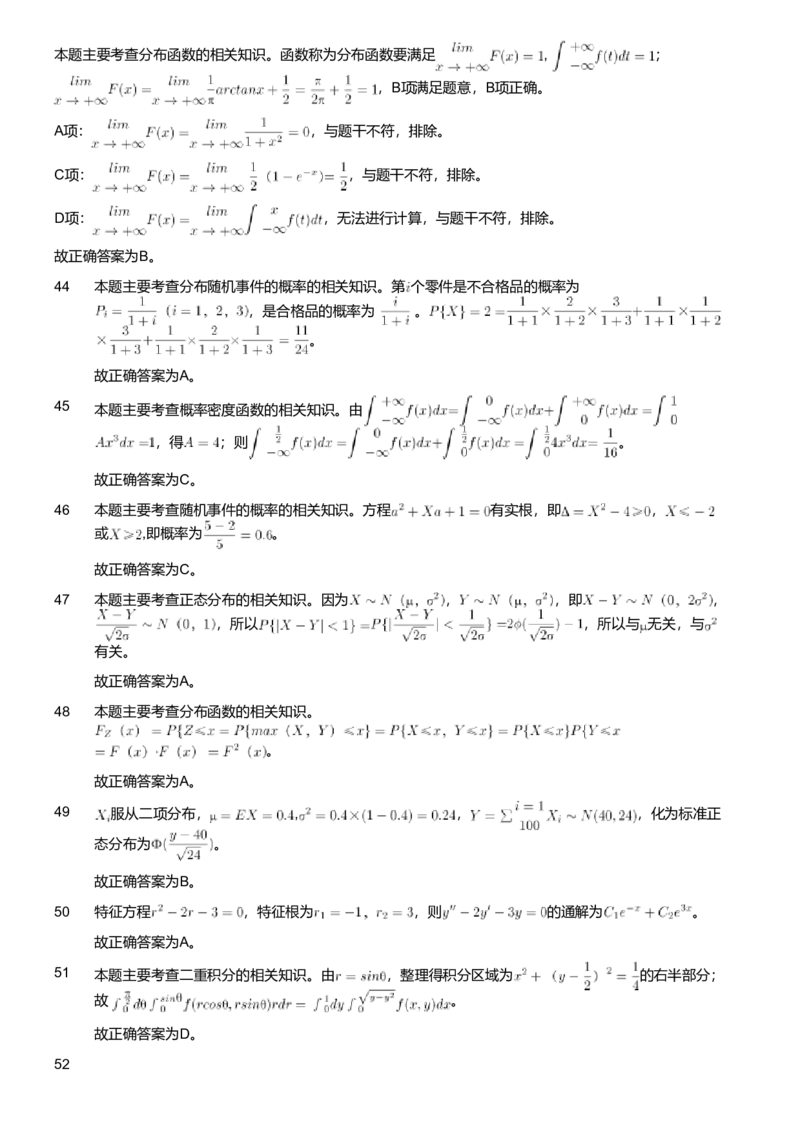 本题主要考查分布函数的相关知识。函数称为分布函数要满足 lim x→+∞ F(x) = 1, ∫ +∞ −∞ f(t)dt = 1;
lim x→+∞ F(x) = lim x→+∞ 1/π arctanx + 1/2 = π/2π + 1/2 = 1, B项满足题意，B项正确。
A项: lim x→+∞ F(x) = lim x→+∞ 1/(1+x²) = 0，与题干不符，排除。
C项: lim x→+∞ F(x) = lim x→+∞ 1/2 (1−e^−x)= 1/2，与题干不符，排除。
D项: lim x→+∞ F(x) = lim x→+∞ ∫ x −∞ f(t)dt，无法进行计算，与题干不符，排除。
故正确答案为B。
44 本题主要考查分布随机事件的概率的相关知识。第i个零件是不合格品的概率为
P_i = 1/(1+i) (i=1, 2, 3)，是合格品的概率为 i/(1+i) 。P{X} = 2 = 1/(1+1) × 2/(1+2) × 3/(1+3) + 1/(1+1) × 1/(1+2)
× 3/(1+3) + 1/(1+1) × 2/(1+2) × 1/(1+3) = 11/24。
故正确答案为A。
45 本题主要考查概率密度函数的相关知识。由∫ +∞ −∞ f(x)dx=∫ 0 −∞ f(x)dx+∫ +∞ 0 f(x)dx =∫ 1 0
Ax³dx =1，得A = 4；则∫ 1/2 −∞ f(x)dx =∫ 0 −∞ f(x)dx+∫ 1/2 0 f(x)dx =∫ 1/2 0 4x³dx= 1/16。
故正确答案为C。
46 本题主要考查随机事件的概率的相关知识。方程a² + Xa + 1 = 0有实根，即Δ = X² − 4⩾0，X⩽ − 2
或X⩾2,即概率为 (5−2)/5 = 0.6。
故正确答案为C。
47 本题主要考查正态分布的相关知识。因为X ~ N (μ, σ²)，Y ~ N (μ, σ²)，即X − Y ~ N (0, 2σ²)，
(X−Y)/(√2σ) ~ N (0, 1)，所以P{|X − Y| < 1} =P{| (X−Y)/(√2σ) | < 1/(√2σ) } =2ϕ( 1/(√2σ) ) − 1，所以与μ无关，与σ²
有关。
故正确答案为A。
48 本题主要考查分布函数的相关知识。
F_Z (x) = P{Z⩽x = P{max (X, Y) ⩽x} = P{X⩽x, Y⩽x} = P{X⩽x}P{Y⩽x
= F (x) ·F (x) = F² (x)。
故正确答案为A。
49 X_i服从二项分布，μ = EX = 0.4,σ² = 0.4×(1 − 0.4) = 0.24，Y = Σ i = 1 100 X_i ~ N(40, 24)，化为标准正
态分布为Φ( (y−40)/√24 )。
故正确答案为B。
50 特征方程r² − 2r − 3 = 0，特征根为r₁ = −1, r₂ = 3，则y″ − 2y′ − 3y = 0的通解为C₁e^−x + C₂e^3x。
故正确答案为A。
51 本题主要考查二重积分的相关知识。由r = sinθ，整理得积分区域为x² + (y − 1/2) ² = 1/4的右半部分；
故 ∫ π/2 0 dθ ∫ sinθ 0 f(rcosθ, rsinθ)rdr = ∫ 1 0 dy ∫ √(y−y²) 0 f(x, y)dx。
故正确答案为D。
52